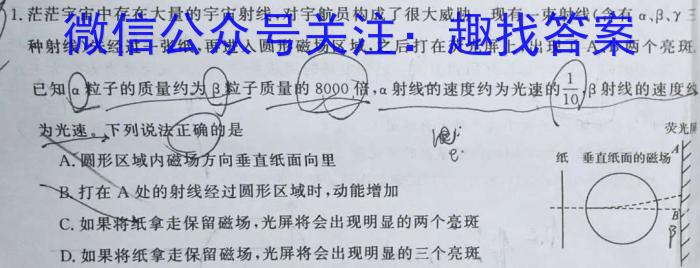 1.茫茫宇宙中存在大量的宇宙射线,对宇航员构成了很大威胁。现有一束射线(含有α、β、γ三
微信公众号关注:趣找答案
种射线)
已知α粒子的质量约为β粒子质量的8000倍,α射线的速度约为光速的1/10,β射线的速度约
为光速。下列说法正确的是
A.圆形区域内磁场方向垂直纸面向里
B.打在A处的射线经过圆形区域时,动能增加
C.如果将纸拿走保留磁场,光屏将会出现明显的两个亮斑
D.如果将纸拿走保留磁场,光屏将会出现明显的三个亮斑
荧光屏
纸 垂直纸面的磁场
A
B
β